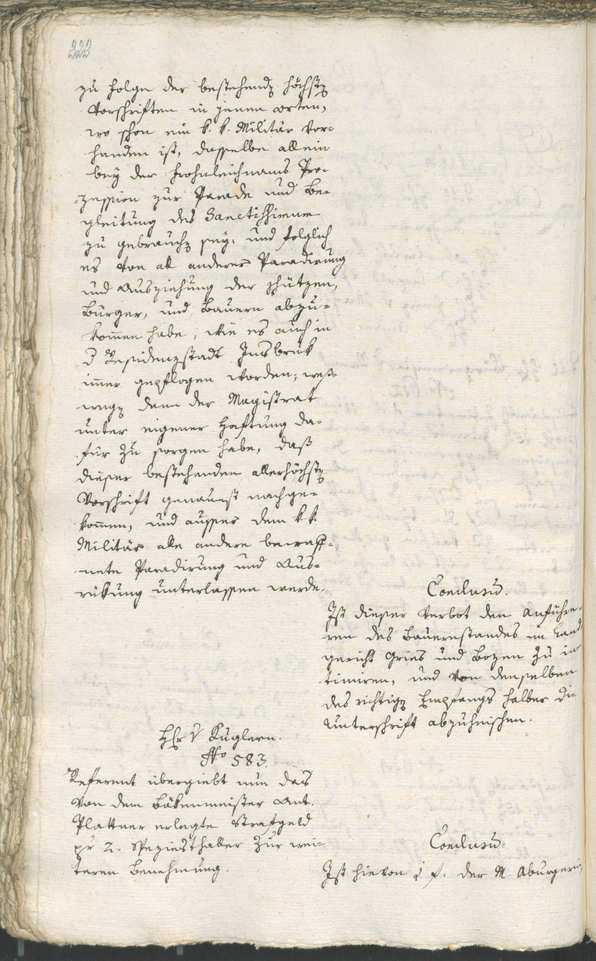 222
zu folge der bestehendn höchstn
Vorschriften in jenen Orten,
wo schon ein k. k. Militär vor-
handen ist, dasselbe allein
bey der Frohnleichnams Pro-
zession zur Parade und Be-
gleitung des Sanctissimum
zu gebrauchn sey, und folglich
es von all anderer Paradirung
und Ausziehung der Schützen,
Bürger, und Bauern abzu-
kommen habe, wie es auch in
d Residenzstadt Insbruk
immer gepflogen worden; weß-
wegn dann der Magistrat
unter eigener Haftung da-
für zu sorgen habe, daß
dieser bestehenden allerhöchstn
Vorschrift genauest nachge-
kommen, und ausser dem k. k.
Militär alle andere bewaff-
nete Paradirung und Aus-
rükung unterlassen werde.
Conclusum.
Ist dieser Verbot den Anführe-
ren des Bauernstandes im Land
gericht Gries und Bozen zu in
timiren, und von denselben
des richtign Empfangs halber die
Unterschrift abzuheischen.
Hr v Kuglern.
No 583.
Referent übergiebt nun das
von dem Bäkenmeister Ant.
Plattner erlegte Strafgeld
pr 2. Speziesthaler zur wei-
teren Benehmung.
Conclusum.
Ist hievon der